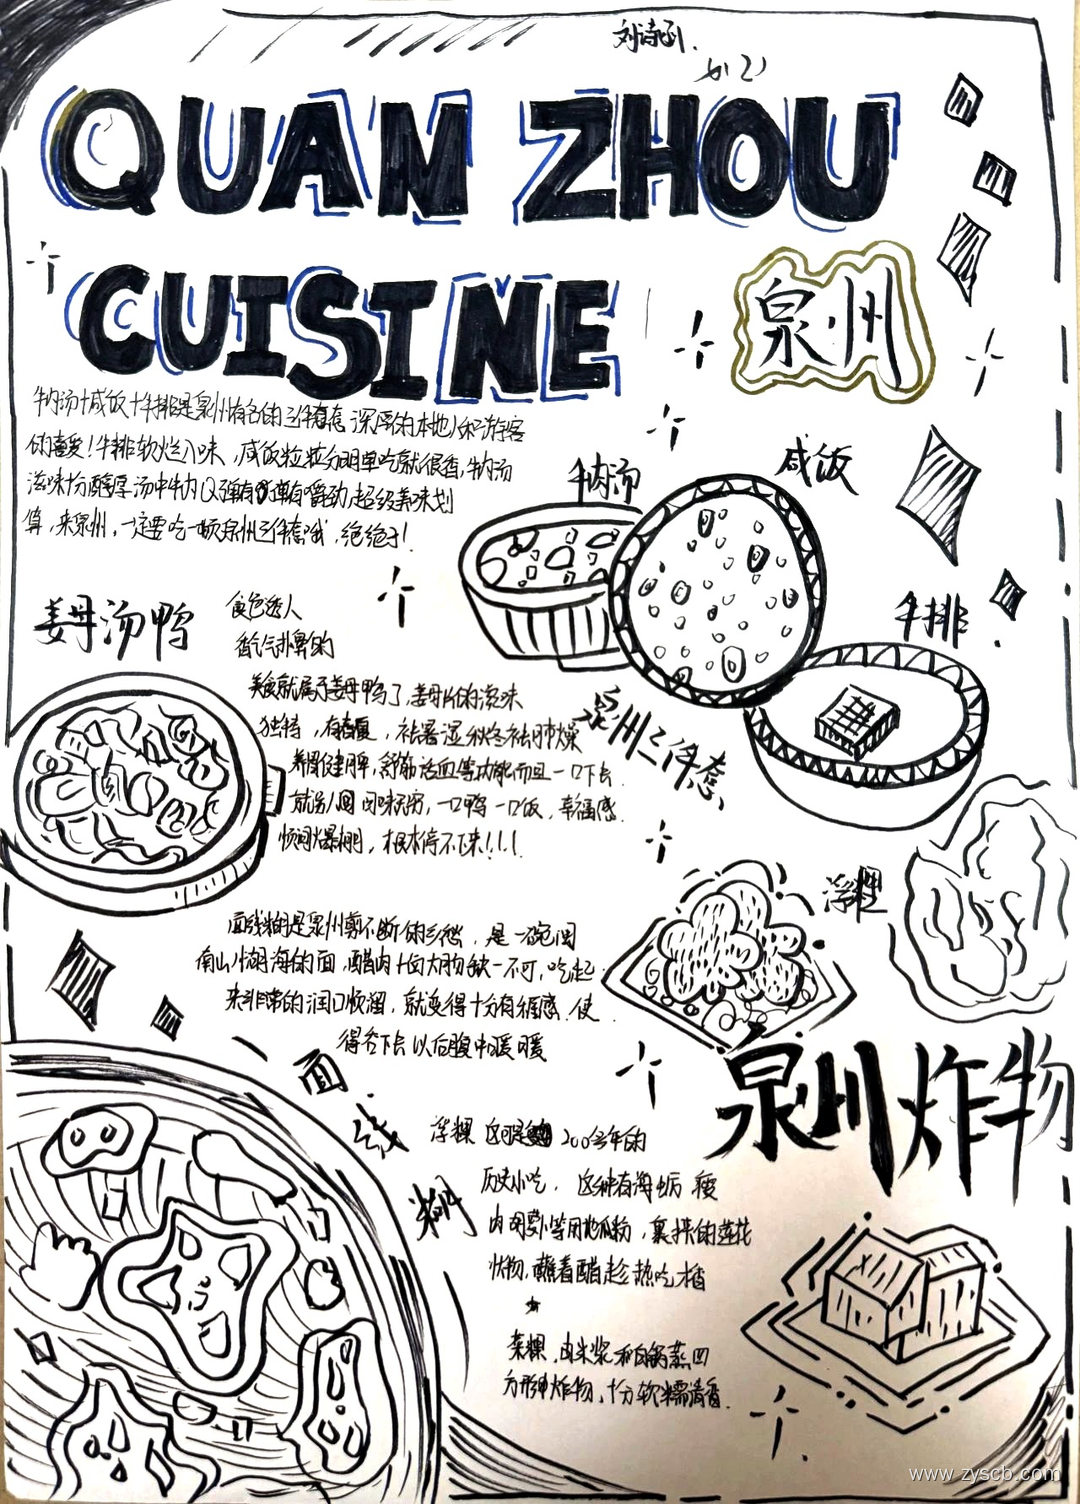 刘诗函
QUAN ZHOU
CUISINE
泉州
牛肉汤+咸饭+牛排是泉州有名的三件套 深受的本地人和游客
的喜爱!牛排软烂入味,咸饭粒粒分明单吃就很香,牛肉汤
滋味十分醇厚 汤中牛肉Q弹有嚼劲,超级美味划
算,来泉州,一定要吃一顿泉州三件套哦,绝绝子!
牛肉汤
咸饭
牛排
泉州三件套
姜母汤鸭
食色诱人
香气扑鼻的
美食就属于姜母鸭了,姜母鸭的滋味
独特,有 祛暑湿 秋冬祛肺燥
养胃健脾,舒筋活血等功能而且一口下去
就另人回 回味无穷,一口鸭一口饭,幸福感
瞬间爆棚,根本停不下来!!!
面线糊是泉州剪不断的乡愁,是一碗
有山 海的面,醋肉 大肠缺一不可,吃起
来非常的润口顺溜,就变得十分有 感.使
得吞下去以后腹中暖暖
面线糊
浮粿
泉州炸物
浮粿 这 200多年的
历史小吃,这种有海蛎 瘦
肉 萝卜等用地瓜粉,裹 的莲花
状物,蘸着醋趁热吃才香
菜粿,由米浆和 蒸 四
方形 炸物,十分软糯清香.
www.zyscb.com